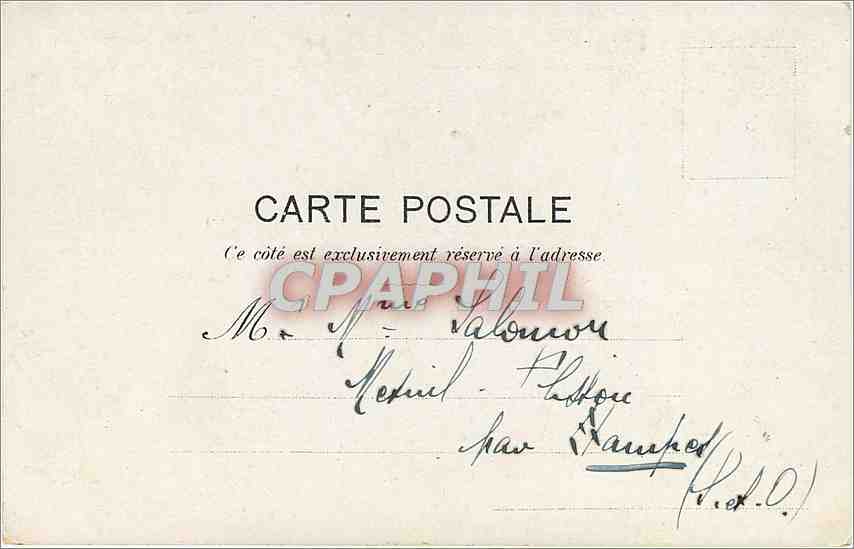 CARTE POSTALE
Ce côté est exclusivement réservé à l'adresse.
CPAPHIL
M. Mme Salomon
Mesnil-
par Etampes
(S. et. O.)